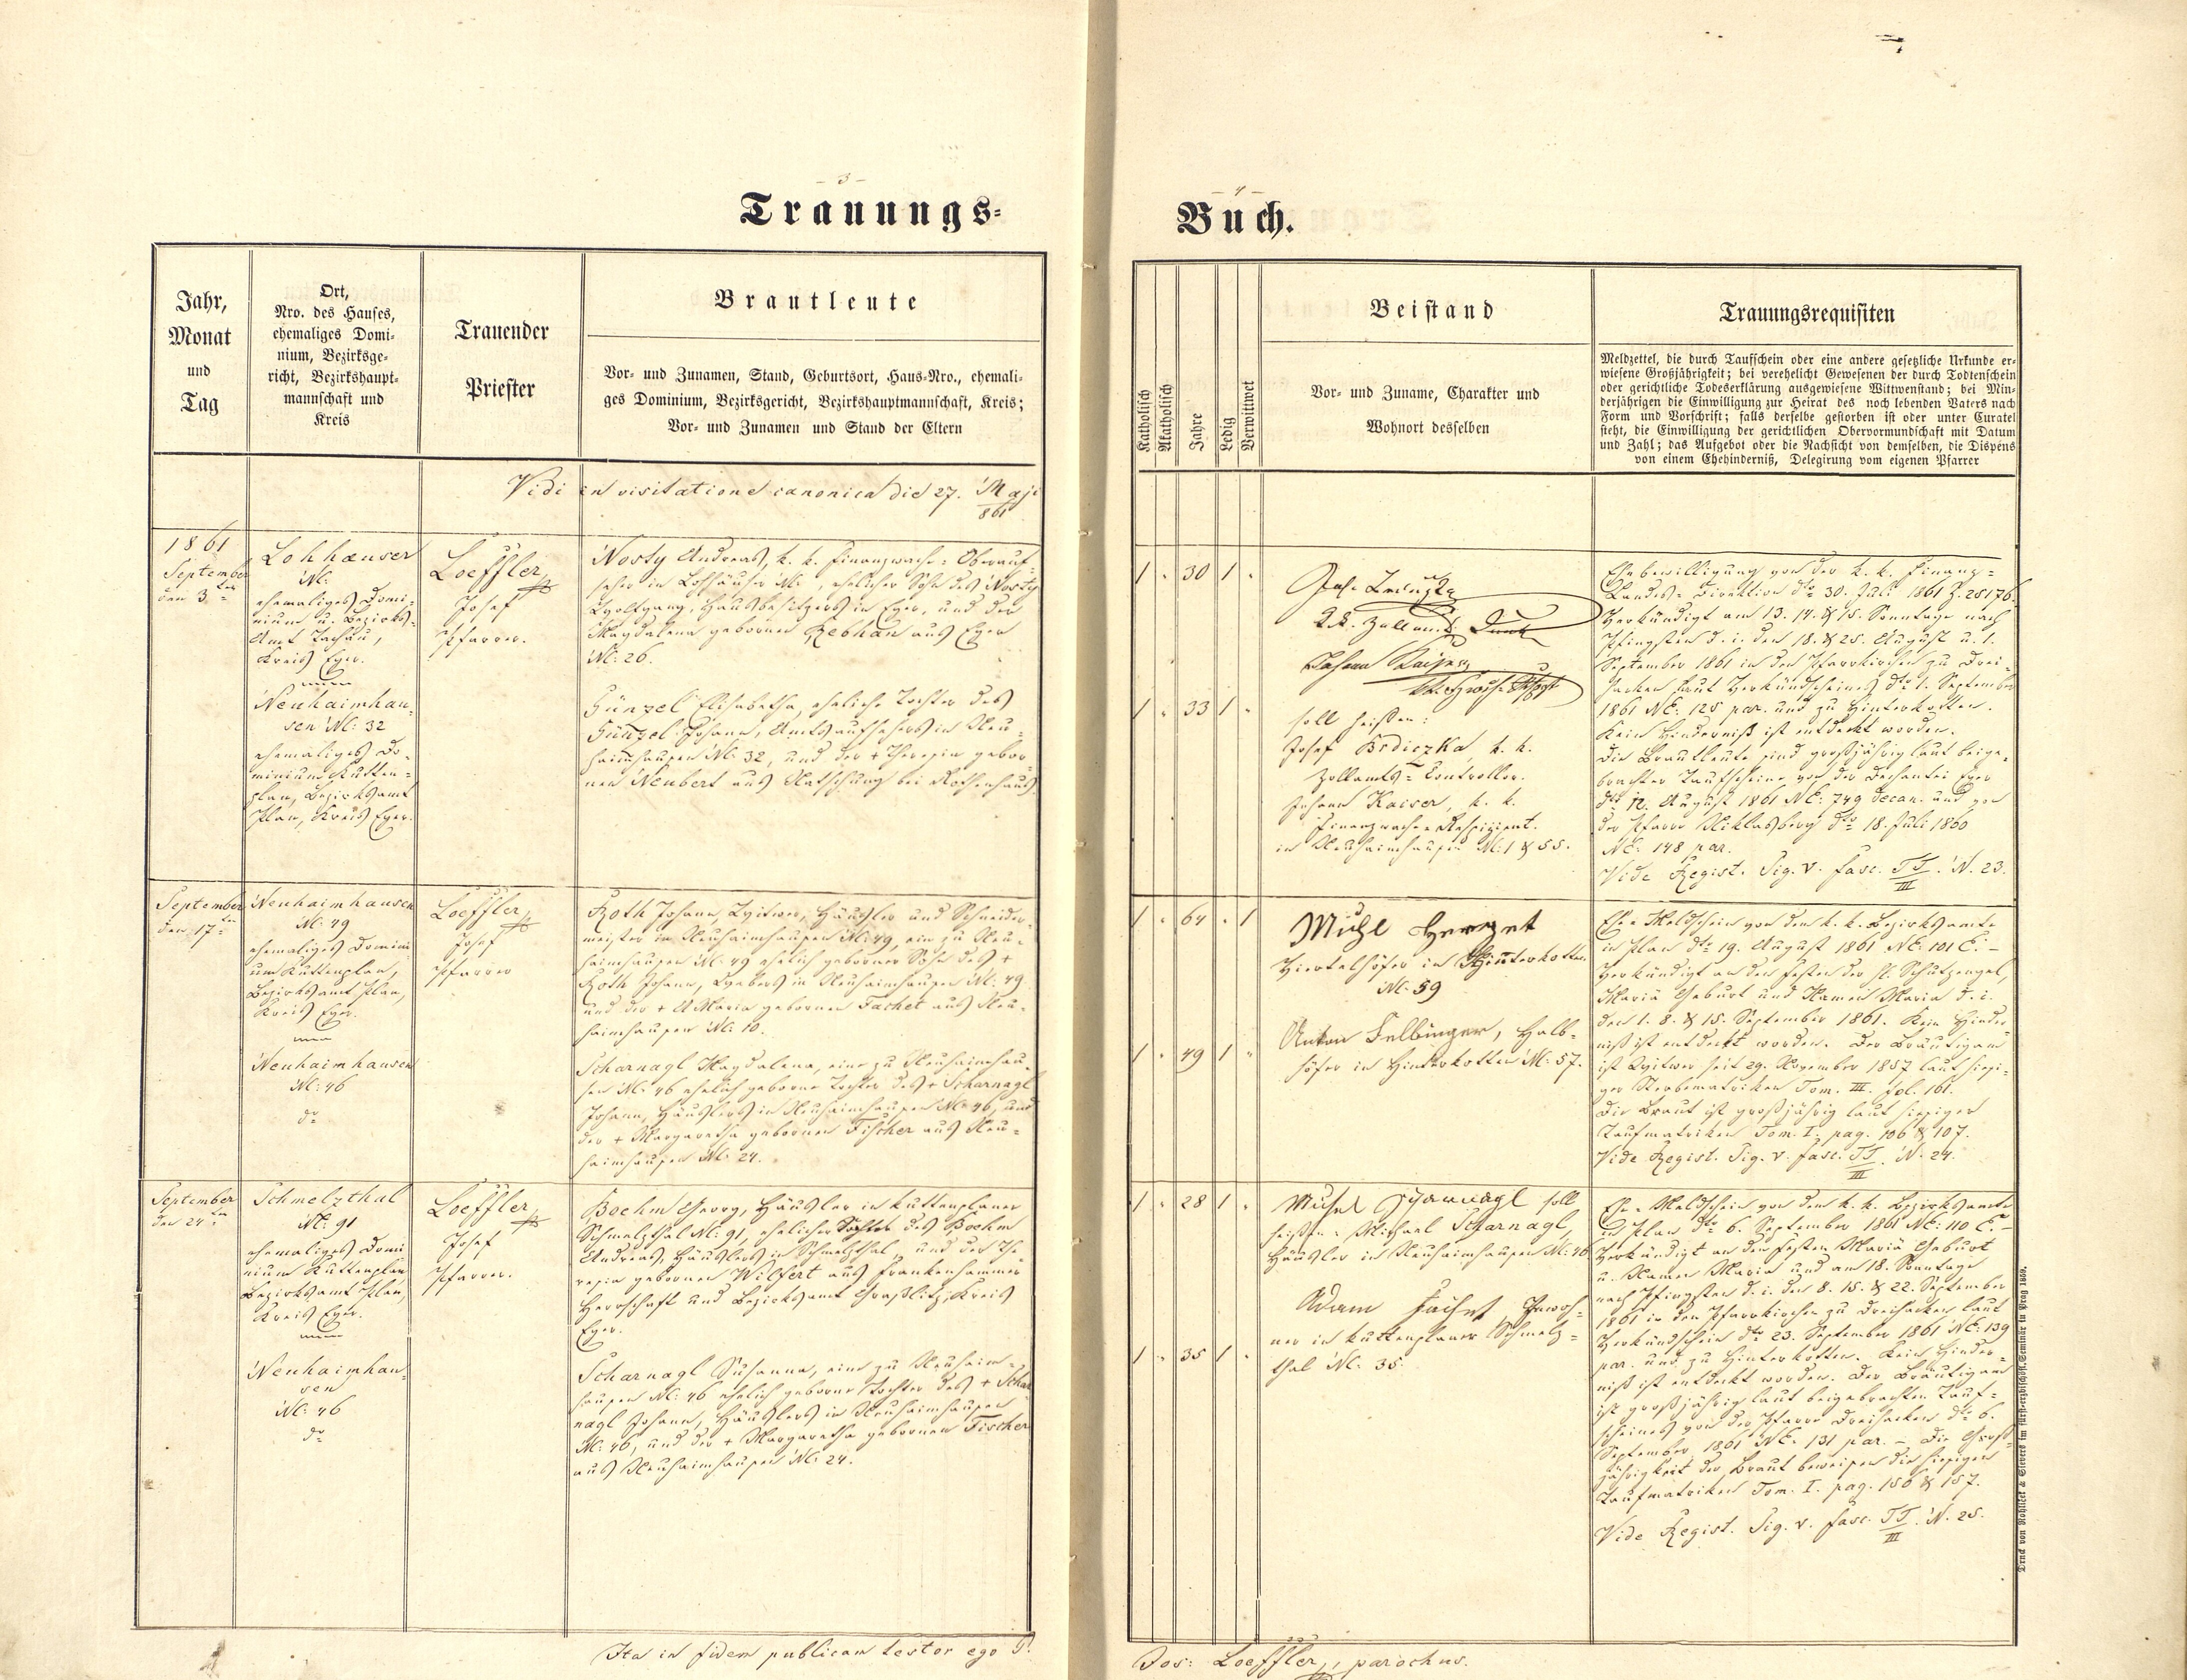 - 3 -
Trauungs-
Jahr,
Monat
und
Tag
Ort,
Nro. des Hauses,
ehemaliges Domi-
nium, Bezirksge-
richt, Bezirkshaupt-
mannschaft und
Kreis
Trauender
Priester
Brautleute
Vor- und Zunamen, Stand, Geburtsort, Haus-Nro., ehemali-
ges Dominium, Bezirksgericht, Bezirkshauptmannschaft, Kreis;
Vor- und Zunamen und Stand der Eltern
Vidi in visitatione canonica die 27. Maji
861
1861
September
den 3ten
Lohhaeuser
N:
ehemaliges Domi-
nium u. Bezirks-
Amt Tachau,
Kreis Eger.
Neuhaimhau-
sen N: 32
ehemaliges Do-
minium Kutten-
plan, Bezirksamt
Plan, Kreis Eger.
Loeffler
Josef
Pfarrer.
Nosty Andreas, k. k. Finanzwache-Oberauf-
seher in Lohhäuser N:, ehelicher Sohn des Nosty
Wolfgang, Hausbesitzers in Eger, und der
Magdalena gebornen Rebhan aus Eger
N: 26.
Günzel Elisabetha, eheliche Tochter des
Günzel Johann, Amtsaufsehers in Neu-
haimhausen N: 32, und der + Theresia gebor-
nen Neubert aus Natschung bei Rothenhaus.
September
den 17ten
Neuhaimhausen
N: 49
ehemaliges Domini-
um Kuttenplan,
Bezirksamt Plan,
Kreis Eger.
Neuhaimhausen
N: 46
dto
Loeffler
Josef
Pfarrer
Roth Johann, Witwer, Häusler und Schneider-
meister in Neuhaimhausen N: 49, ein zu Neu-
haimhausen N: 49 ehelich geborner Sohn des +
Roth Johann, Webers in Neuhaimhausen N: 49
und der + A Maria gebornen Fachet aus Neu-
haimhausen N: 10.
Scharnagl Magdalena, eine zu Neuhaimhau-
sen N: 46 ehelich geborne Tochter des + Scharnagl
Johann, Häuslers in Neuhaimhausen N: 46, und
der + Margaretha gebornen Fischer aus Neu-
haimhausen N: 24.
September
den 24ten
Schmelzthal
N: 91
ehemaliges Domi-
nium Kuttenplan
Bezirksamt Plan,
Kreis Eger.
Neuhaimhau-
sen
N: 46
dto
Loeffler
Josef
Pfarrer.
Boehm Georg, Häusler in Kuttenplaner
Schmelzthal N: 91, ehelicher Sohn des Boehm
Andreas, Häuslers in Schmelzthal, und der The-
resia gebornen Wilfert aus Frankenhammer
Herrschaft und Bezirksamt Graßlitz, Kreis
Eger.
Scharnagl Susanna, eine zu Neuhaim-
hausen N: 46 ehelich geborne Tochter des + Schar-
nagl Johann, Häuslers in Neuhaimhausen
N: 46, und der + Margaretha gebornen Fischer
aus Neuhaimhausen N: 24.
Ita in fidem publicam testor ego P.
- 4 -
Buch.
Katholisch
Akatholisch
Jahre
Ledig
Verwittwet
Beistand
Vor- und Zuname, Charakter und
Wohnort desselben
Trauungsrequisiten
Meldzettel, die durch Taufschein oder eine andere gesetzliche Urkunde er-
wiesene Großjährigkeit; bei verehelicht Gewesenen der durch Todtenschein
oder gerichtliche Todeserklärung ausgewiesene Wittwenstand; bei Min-
derjährigen die Einwilligung zur Heirat des noch lebenden Vaters nach
Form und Vorschrift; falls derselbe gestorben ist oder unter Curatel
steht, die Einwilligung der gerichtlichen Obervormundschaft mit Datum
und Zahl; das Aufgebot oder die Nachsicht von demselben, die Dispens
von einem Ehehinderniß, Delegirung vom eigenen Pfarrer
1 " 30 1 "
1 " 33 1 "
Johann Kaiser
soll heißen:
Josef Brdiczka, k. k.
Zollamts-Controllor.
Johann Kaiser, k. k.
Finanzwache-Respizient.
in Neuhaimhausen N: 1 & 55.
Ehebewilligung von der k. k. Finanz-
Landes-Direktion dto 30. Juli 1861 Z. 25176.
Verkündigt am 13. 14. & 15. Sonntage nach
Pfingsten d. i. den 18. & 25. August u. 1.
September 1861 in den Pfarrkirchen zu Drei-
hacken laut Verkündscheines dto 1. September
1861 NE: 125 par. und zu Hinterkotten.
Kein Hinderniß ist entdeckt worden.
Die Brautleute sind großjährig laut beige-
brachter Taufscheine von der Dechantei Eger
dto 12. August 1861 NE: 749 decan. und von
der Pfarre Niklasberg dto 18. Juli 1860
NE: 148 par.
Vide Regist. Sig. V. fasc. TT/III. N. 23.
1 " 64 " 1
1 " 49 1 "
Viertelhöfer in Hinterkotten
N: 59
Anton Fellbinger, Halb-
höfer in Hinterkotten N: 57.
Ehe-Meldschein von dem k. k. Bezirksamte
in Plan dto 19. August 1861 NE: 101 E. -
Verkündigt an den Festen der hl. Schutzengel,
Mariä Geburt und Namen Maria d. i.
den 1. 8. & 15. September 1861. Kein Hinder-
niß ist entdeckt worden. Der Bräutigam
ist Witwer seit 29. November 1857 laut hiesi-
ger Sterbematriken Tom. III. fol. 161.
Die Braut ist großjährig laut hiesiger
Taufmatriken Tom. I. pag. 106 & 107.
Vide Regist. Sig. V. fasc. TT/III. N. 24.
1 " 28 1 "
1 " 35 1 "
Michel Scharnagl soll
heißen: Michael Scharnagl,
Häusler in Neuhaimhausen N: 46
Adam Fachet, Inwoh-
ner in Kuttenplaner Schmelz-
thal N: 35.
Ehe-Meldschein von dem k. k. Bezirksamte
in Plan dto 6. September 1861 NE: 110 E. -
Verkündigt an den Festen Mariä Geburt
u. Namen Maria und am 18. Sonntage
nach Pfingsten d. i. den 8. 15. & 22. September
1861 in den Pfarrkirchen zu Dreihacken laut
Verkündschein dto 23. September 1861 NE: 139
par. und zu Hinterkotten. Kein Hinder-
niß ist entdeckt worden. Der Bräutigam
ist großjährig laut beigebrachten Tauf-
scheines von der Pfarre Dreihacken dto 6.
September 1861 NE. 131 par. - Die Groß-
jährigkeit der Braut beweisen die hiesigen
Taufmatriken Tom. I. pag. 156 & 157.
Vide Regist. Sig. V. fasc. TT/III. N. 25.
Druck von Rohliček & Sievers im fürst-erzbischöfl. Seminär in Prag 1860.
Jos: Loeffler, parochus.